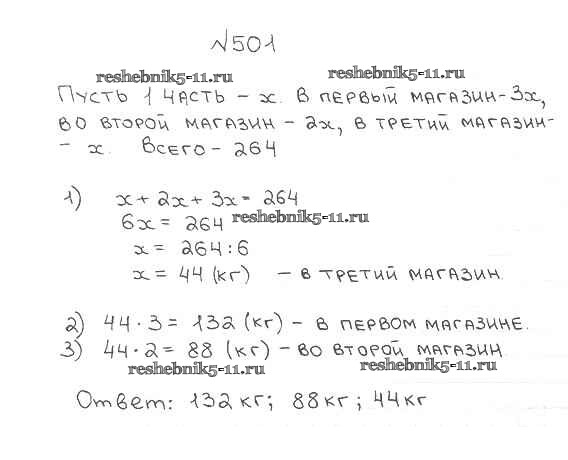 №501
reshebnik5-11.ru reshebnik5-11.ru
Пусть 1 часть - x. В первый магазин - 3x,
во второй магазин - 2x, в третий магазин -
- x. Всего - 264
1) x + 2x + 3x = 264
6x = 264 reshebnik5-11.ru
x = 264 : 6
x = 44 (кг) - в третий магазин.
2) 44 · 3 = 132 (кг) - в первом магазине.
3) 44 · 2 = 88 (кг) - во второй магазин.
reshebnik5-11.ru reshebnik5-11.ru
Ответ: 132 кг; 88 кг; 44 кг